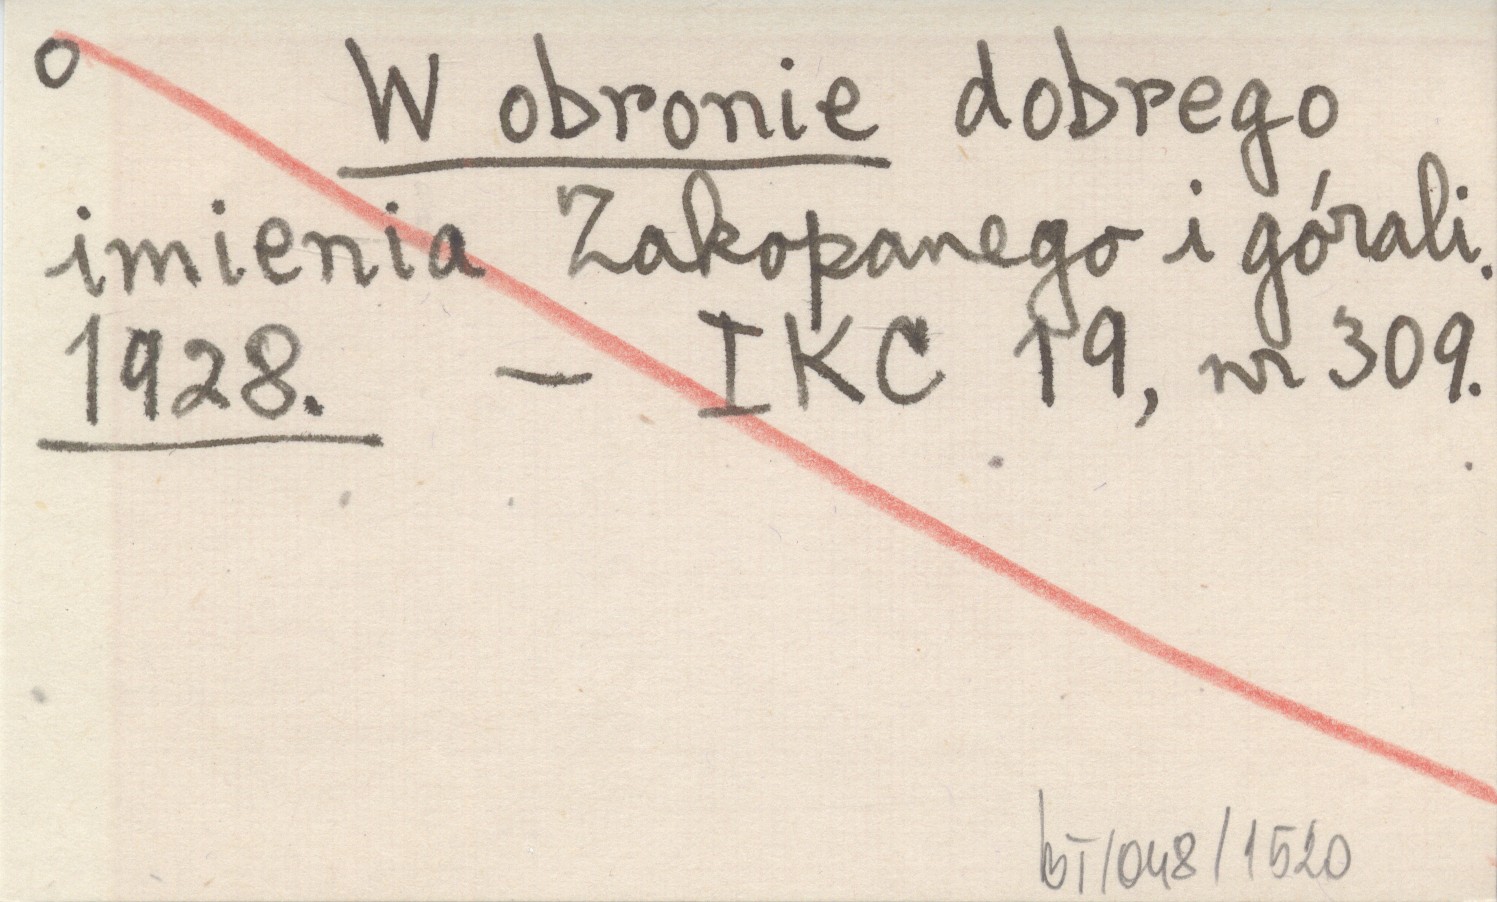 o W obronie dobrego
imienia Zakopanego i górali.
1928. – IKC 19, nr 309.
bT/048/1520